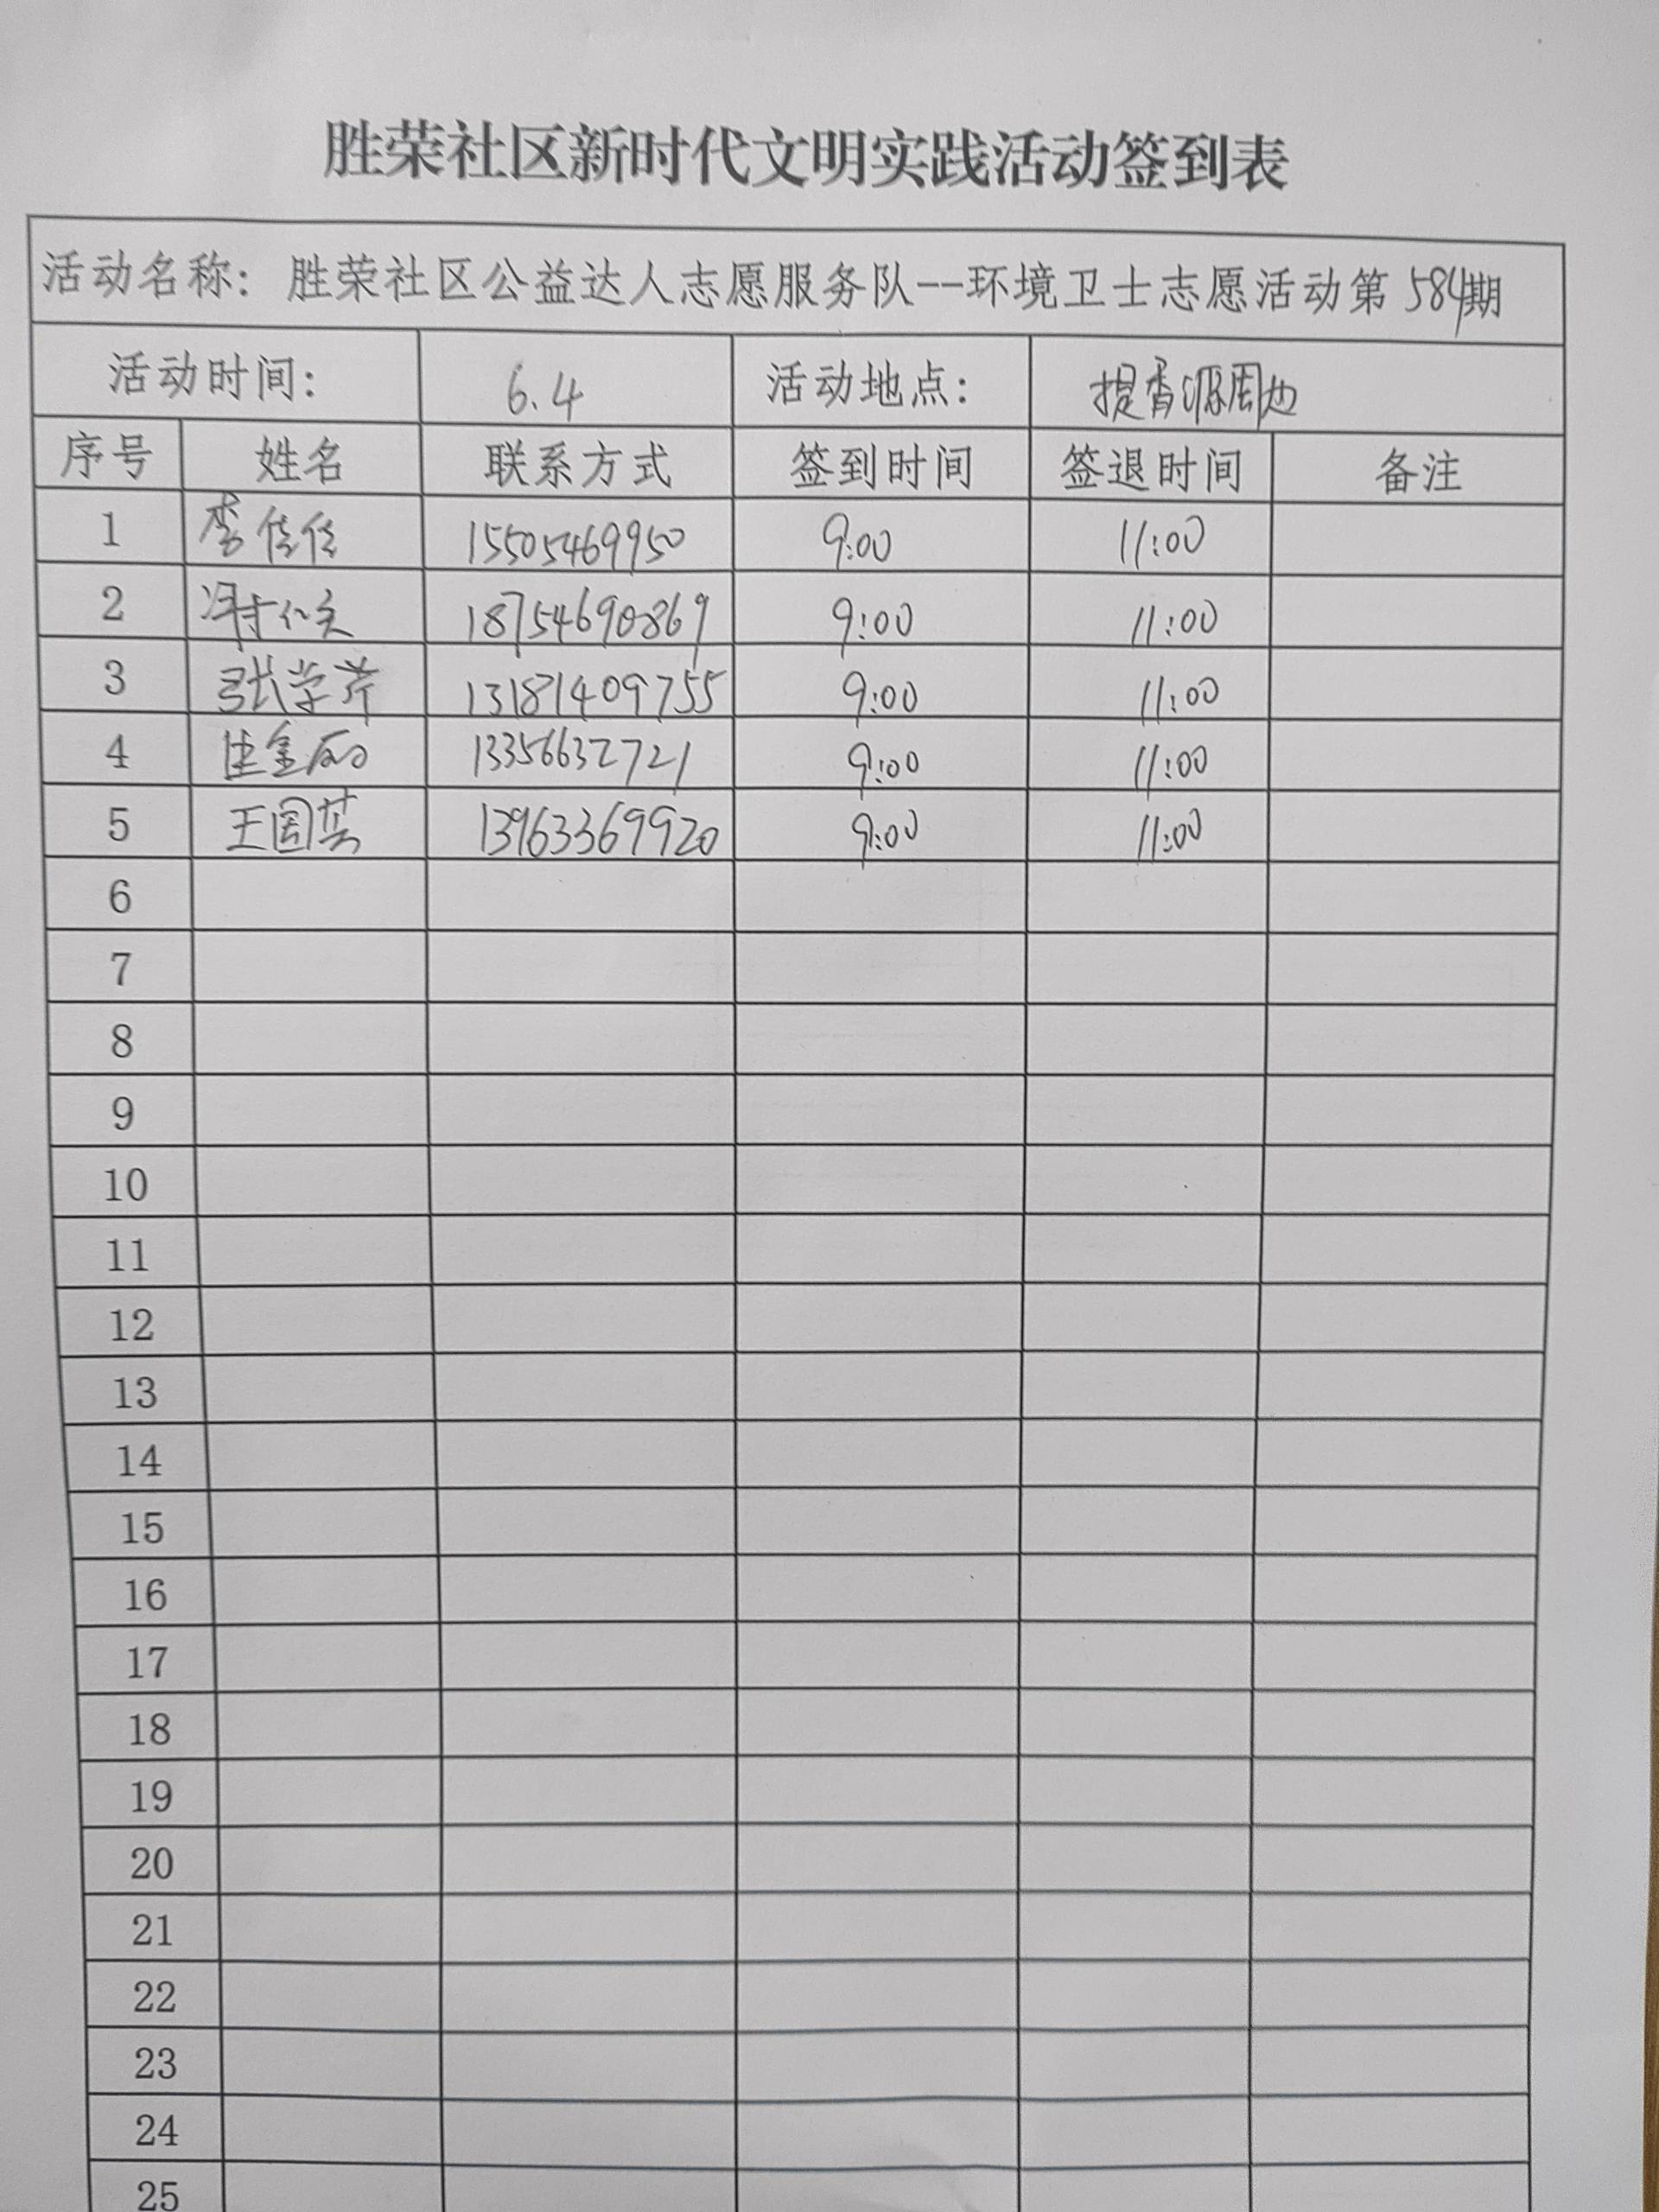 胜荣社区新时代文明实践活动签到表
活动名称：胜荣社区公益达人志愿服务队--环境卫士志愿活动第584期
活动时间： 6.4 活动地点： 提香源周边
序号 姓名 联系方式 签到时间 签退时间 备注
1 李佳佳 15505469950 9:00 11:00
2 18754690869 9:00 11:00
3 张学芹 13181409755 9:00 11:00
4 13356632721 9:00 11:00
5 王国英 13963369920 9:00 11:00
6
7
8
9
10
11
12
13
14
15
16
17
18
19
20
21
22
23
24
25